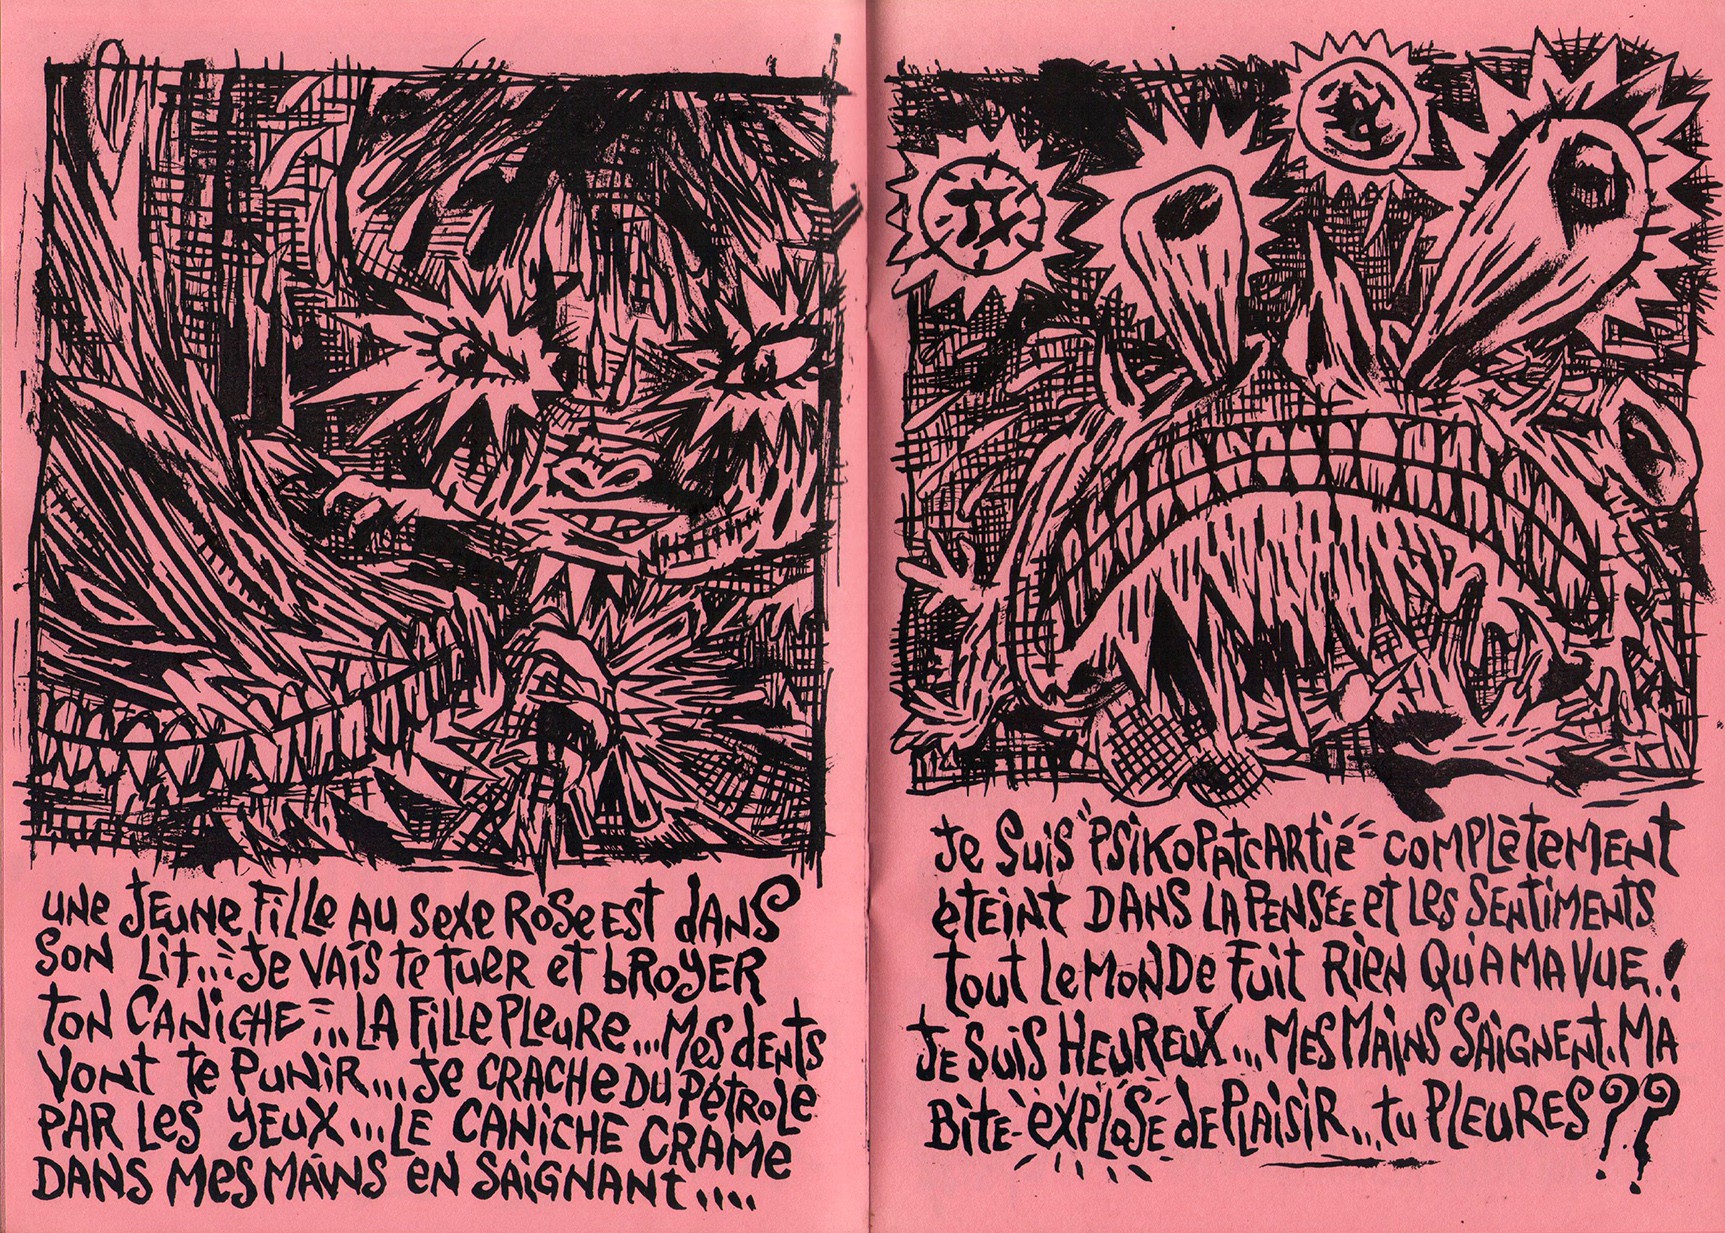 UNE JEUNE FILLE AU SEXE ROSE EST DANS
SON LIT... JE VAIS TE TUER ET BROYER
TON CANICHE ... LA FILLE PLEURE... MES DENTS
VONT TE PUNIR... JE CRACHE DU PÉTROLE
PAR LES YEUX... LE CANICHE CRAME
DANS MES MAINS EN SAIGNANT....
JE SUIS "PSIKOPATCARTIÉ" COMPLÈTEMENT
ÉTEINT DANS LA PENSÉE ET LES SENTIMENTS
TOUT LE MONDE FUIT RIEN QU'A MA VUE.!
JE SUIS HEUREUX... MES MAINS SAIGNENT. MA
BITE EXPLOSE DE PLAISIR... TU PLEURES??